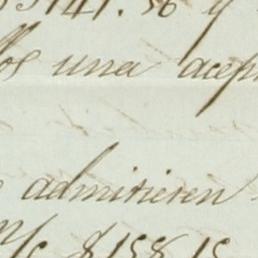 5141.56 y
los una acep
admitieren
m/c $158.15